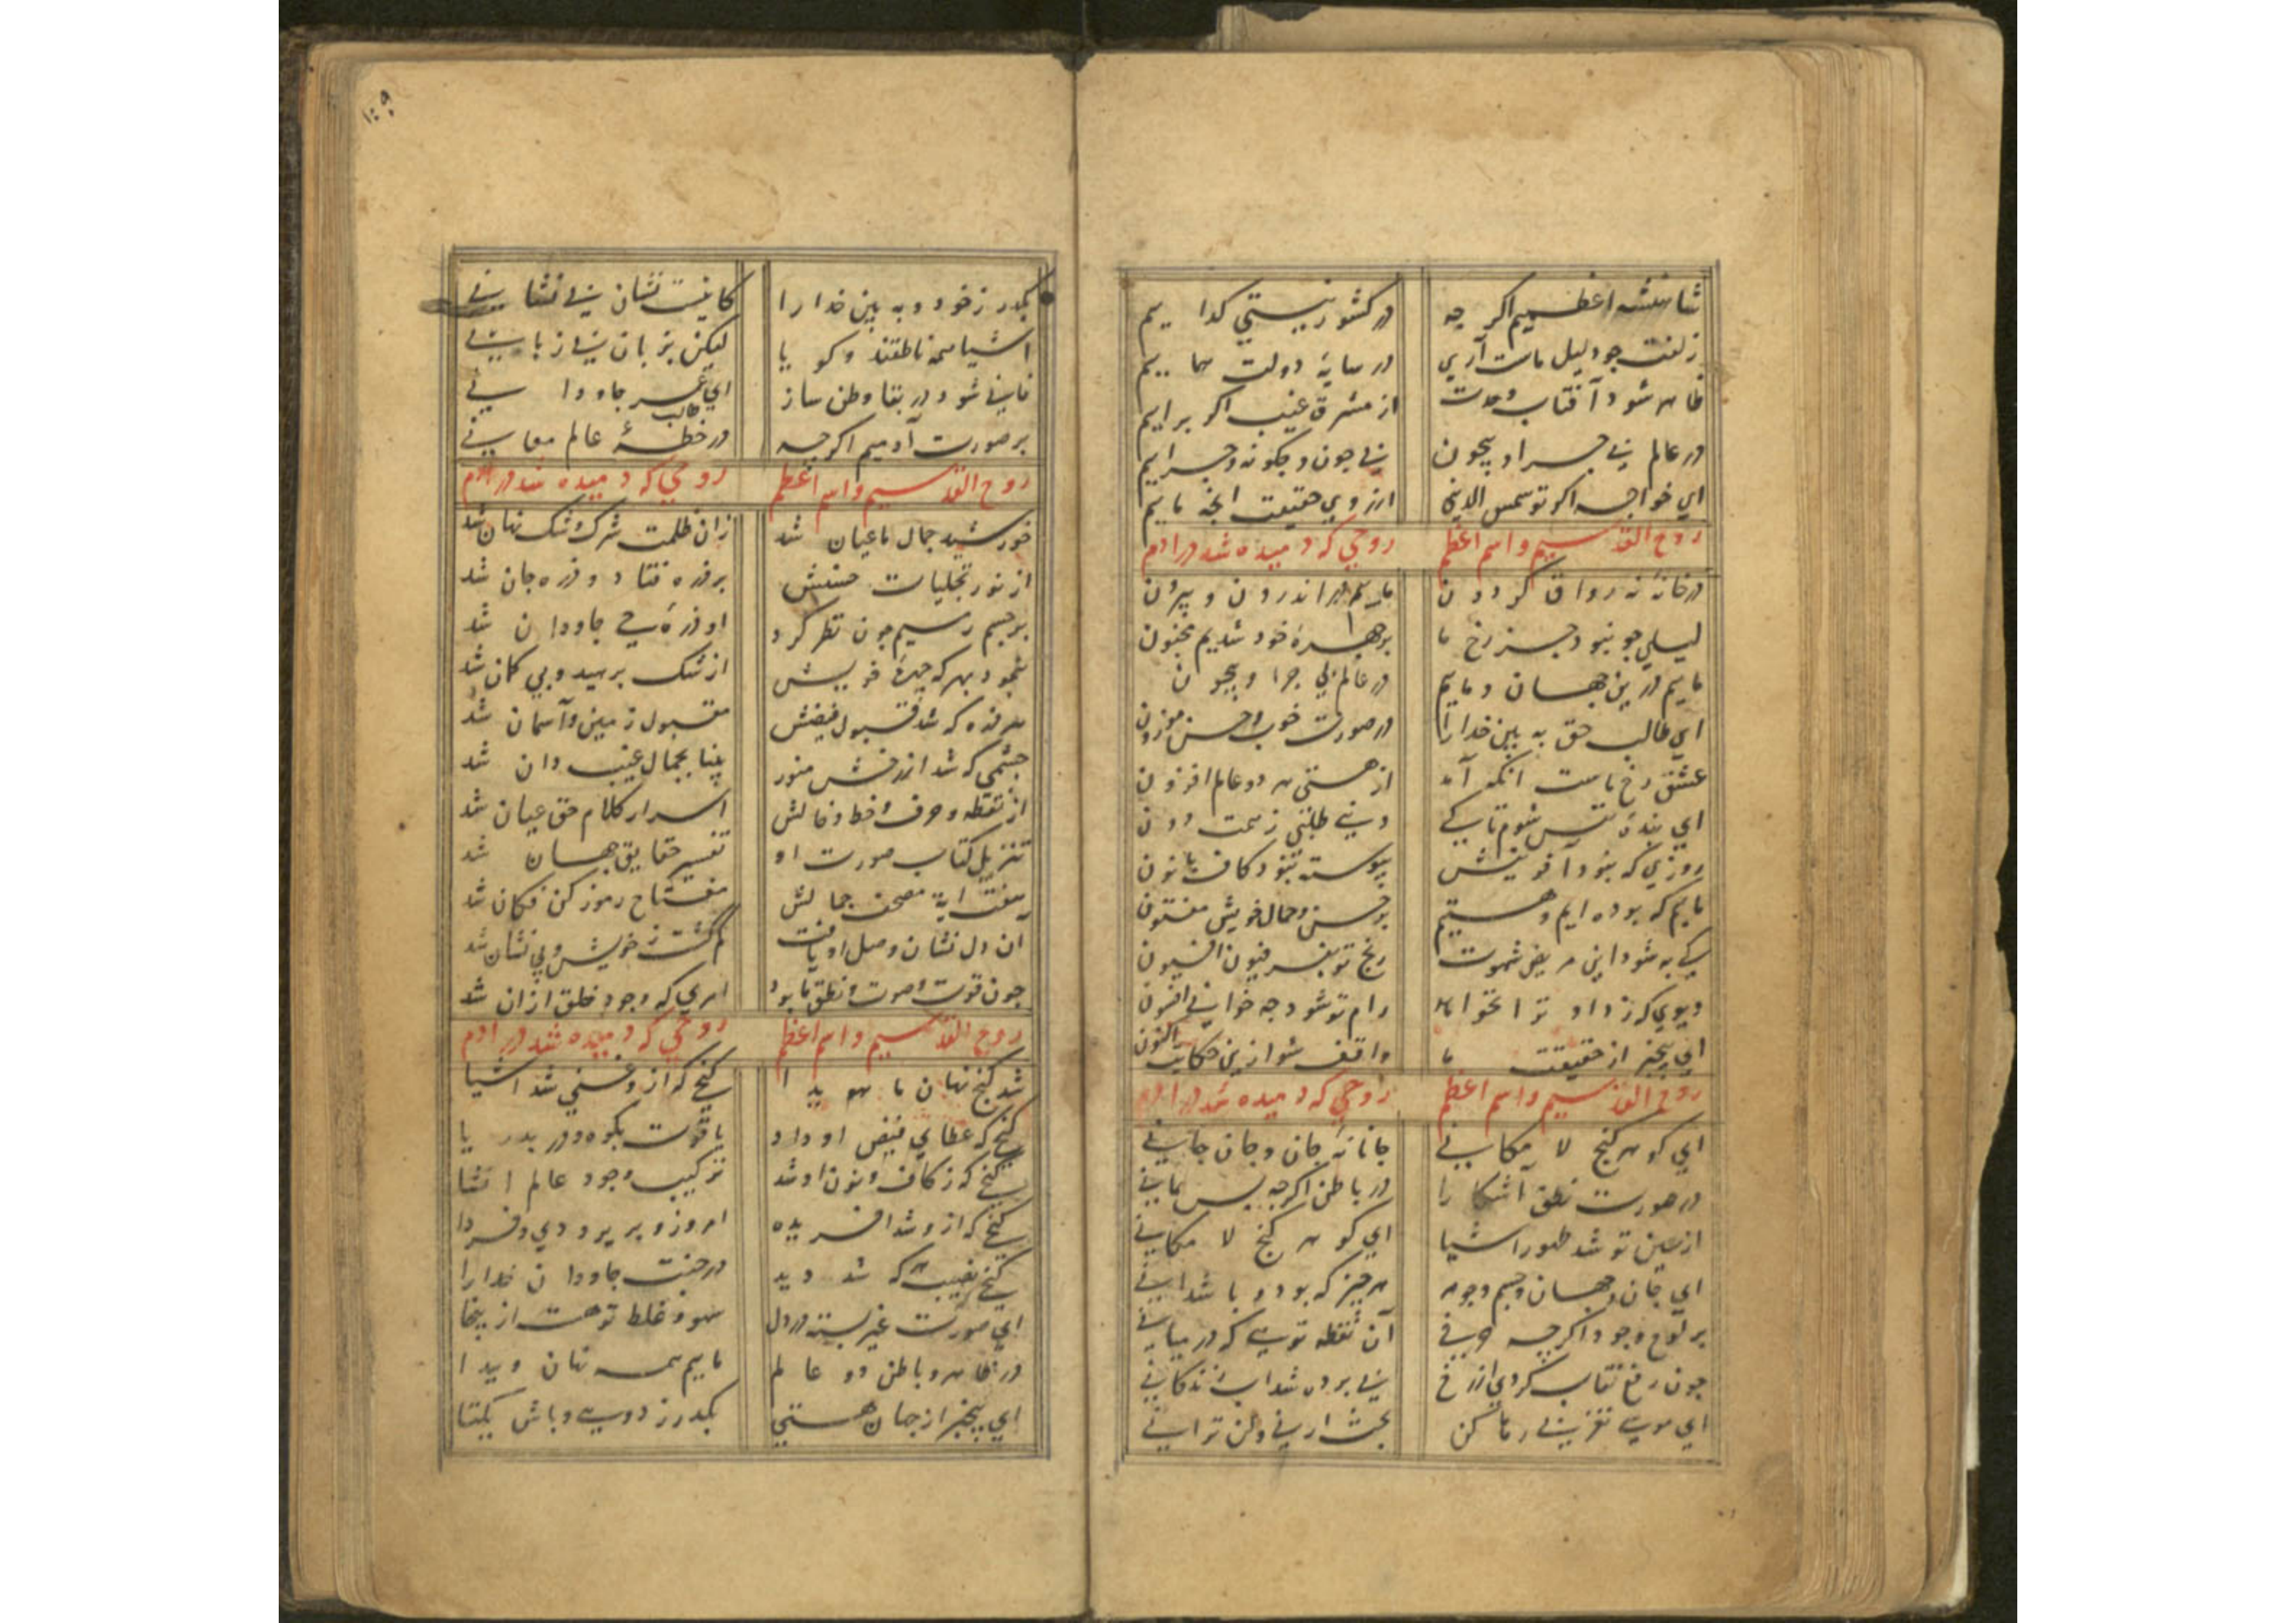 شاهنشه اعظمیم اکر چه در کشور نیستی کدا ییم
زلفت جو دلیل ماست آری در سایه دولت هما ییم
ظاهر شود آفتاب وحدت از مشرق غیب اکر براییم
در عالم بی جرا و بیچون بی جون و چکونه و جراییم
ای خواجه اکر تو شمس الدینی ارزوی حقیقت انجه ماییم
روح القدسیم و اسم اعظم روحی که دمیده شد در ادم
در خانه نه رواق کردون ماییم در اندرون و بیرون
لیلی جو نبود جز رخ ما بر جهره خود شدیم مجنون
ماییم درین جهان و ماییم در عالم بی جرا و بیچون
ای طالب حق به بین خدارا در صورت خوب احسن موزون
عشق رخ ماست انکه آمد از هستی هر دو عالم افزون
ای بنده نفس شوم تا کی
روزی که نبود آفرینش پیوسته نبود کاف با نون
ماییم که بوده ایم و هستیم بر حسن و جمال خویش مفتون
کی به شود این مریض شهوت رنج تو بغیر فیون افسیون
دیوی که زداد ترا نخواهد رام تو شود جه خوانی افسون
ای بیخبر از حقیقت ما واقف شو ازین حکایت اکنون
روح القدسیم و اسم اعظم روحی که دمیده شد در ادم
ای کوهر کنج لا مکانی جانانه جان و جان جانی
در صورت نطق آشکا را در باطن اکرجه بس نهانی
از عین تو شد ظهور اشیا ای کوهر کنج لا مکانی
ای جان و جهان و جسم و جوهر هر جیز که بود و باشد انی
بر لوح وجود اکر چه حرفی آن نقطه تویی که در میانی
جون رفع نقاب کردی از رخ بی برده شد اب زندکانی
ای موسی تغزبینی رها کن بحث ارنی و لن ترانی
۱۰۹
بکذر ز خود و به بین خدا را کانیست نشان بی نشانی
اشیا همه ناطقند و کو یا لیکن بزبان بی زبانی
فانی شو و در بقا وطن ساز ای طالب عمر جاودانی
بر صورت آدمیم اکرجه در خطه عالم معانی
روح القدسیم و اسم اعظم روحی که دمیده شد در ادم
خورشید جمال ما عیان شد زان ظلمت شرک و شک نهان شد
از نور تجلیات حسنش بر ذره فتاد و ذره جان شد
بر جسم رمیم جون نظر کرد او زنده حی جاودان شد
بنمود بهر که جهره خویش از شک برهید و بی کمان شد
هر ذره که شد قبول فیضش مقبول زمین و آسمان شد
جشمی که شد از رخش منور بینا بجمال غیب دان شد
از نقطه و حرف و خط و خالش اسرار کلام حق عیان شد
تنزیل کتاب صورت او تفسیر حقایق جهان شد
هفت ایة مصحف جمالش مفتاح رموز کن فکان شد
ان دل نشان وصل او یافت کم کشت ز خویش و بی نشان شد
جون قوت و صوت و نطق ما بود امری که وجود خلق ازان شد
روح القدسیم و اسم اعظم روحی که دمیده شد در ادم
شد کنج نهان ما هویدا کنجی که از و غنی شد اشیا
کنجی که عطای فیض او داد یاقوت بکوه و در بدریا
کنجی که ز کاف و نون او شد ترکیب وجود عالم انشا
کنجی که از و شد افریده امروز و پریر و دی و فردا
کنجی نصیب هر که شد دید در جنت جاودان خدارا
ای صورت غیر بسته در دل سهو و غلط تو هست از ینجا
در ظاهر و باطن دو عا لم ماییم همه نهان و پیدا
ای بیخبر از جهان هستی بکذر ز دویی و باش یکتا